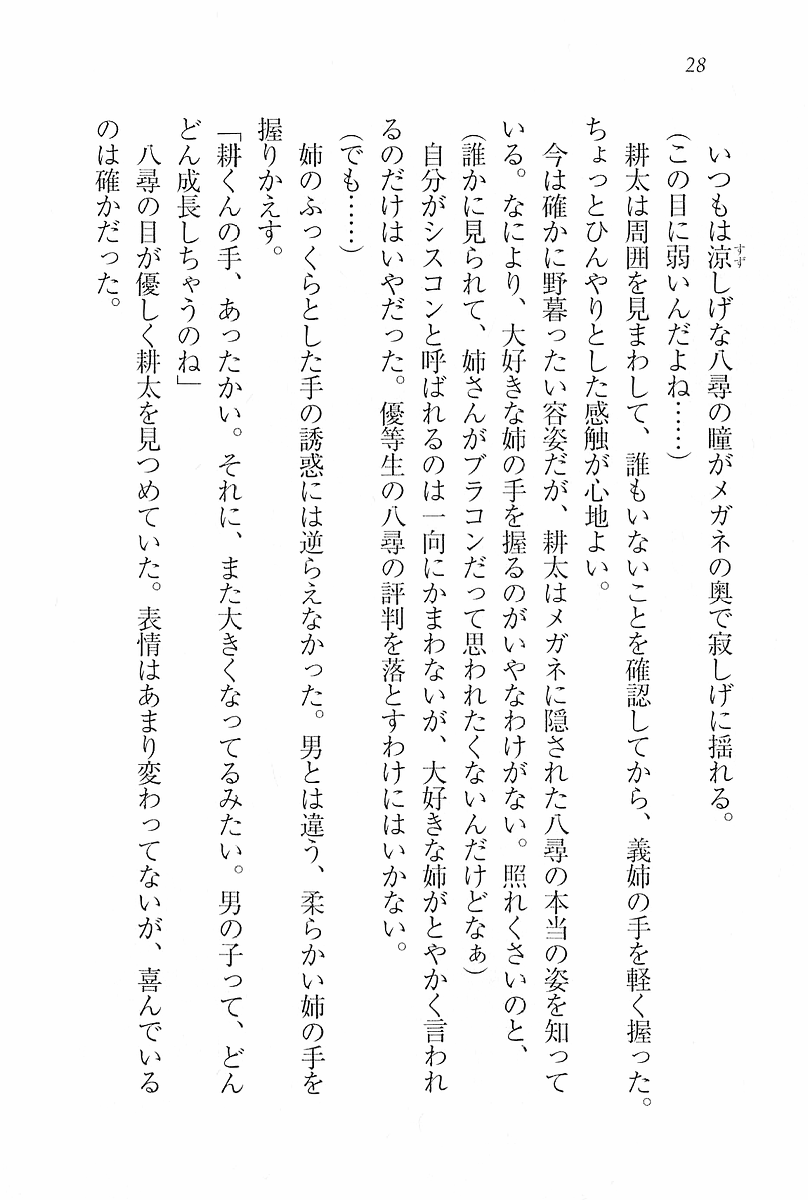 28
いつもは涼しげな八尋の瞳がメガネの奥で寂しげに揺れる。
すず
(この目に弱いんだよね……)
耕太は周囲を見まわして、誰もいないことを確認してから、義姉の手を軽く握った。
ちょっとひんやりとした感触が心地よい。
今は確かに野暮ったい容姿だが、耕太はメガネに隠された八尋の本当の姿を知って
いる。なにより、大好きな姉の手を握るのがいやなわけがない。照れくさいのと、
(誰かに見られて、姉さんがブラコンだって思われたくないんだけどなぁ)
自分がシスコンと呼ばれるのは一向にかまわないが、大好きな姉がとやかく言われ
るのだけはいやだった。優等生の八尋の評判を落とすわけにはいかない。
(でも……)
姉のふっくらとした手の誘惑には逆らえなかった。男とは違う、柔らかい姉の手を
握りかえす。
「耕くんの手、あったかい。それに、また大きくなってるみたい。男の子って、どん
どん成長しちゃうのね」
八尋の目が優しく耕太を見つめていた。表情はあまり変わってないが、喜んでいる
のは確かだった。